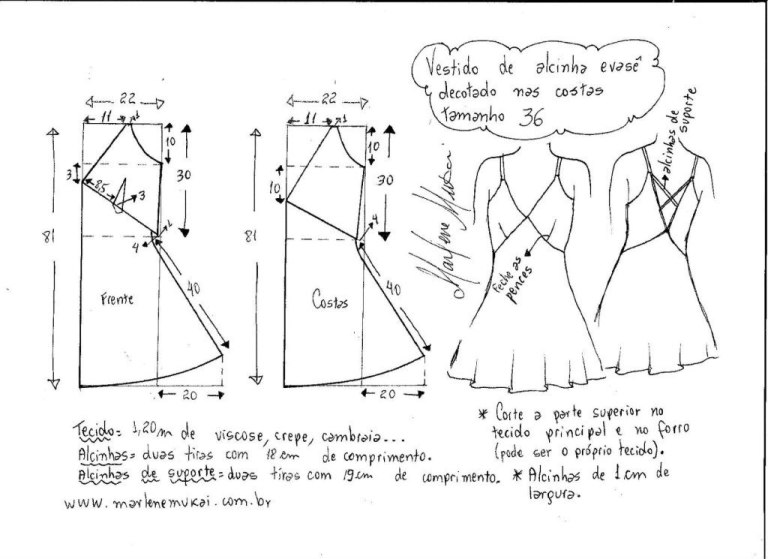 Vestido de alcinha evasê
decotado nas costas
Tamanho 36
22
11
1
10
3
8,5
3
30
1
4
81
40
Frente
20
22
11
1
10
10
30
4
81
40
Costas
20
Marlene Mukai
alcinhas de
suporte
feche as
pences
Tecido= 1,20m de viscose, crepe, cambraia...
Alcinhas= duas tiras com 18cm de comprimento.
Alcinhas de suporte= duas tiras com 19cm de comprimento.
www.marlenemukai.com.br
* Corte a parte superior no
tecido principal e no forro
(pode ser o próprio tecido).
* Alcinhas de 1cm de
largura.